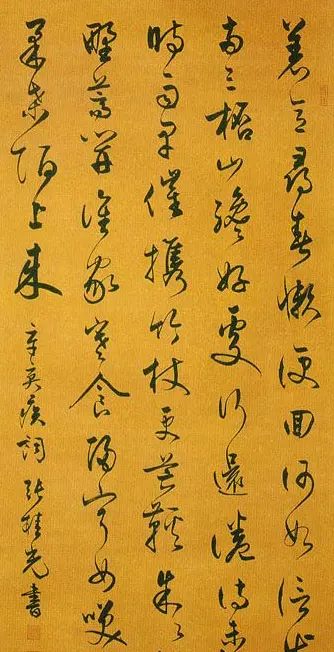 著意尋春懶便回何如信步
兩三桮山纔好處行還倦詩未
時雨早催攜竹杖更芒鞋朱々
野蒿開誰家寒食歸寧女笑
柔桑陌上來
辛弃疾詞 張桂光書